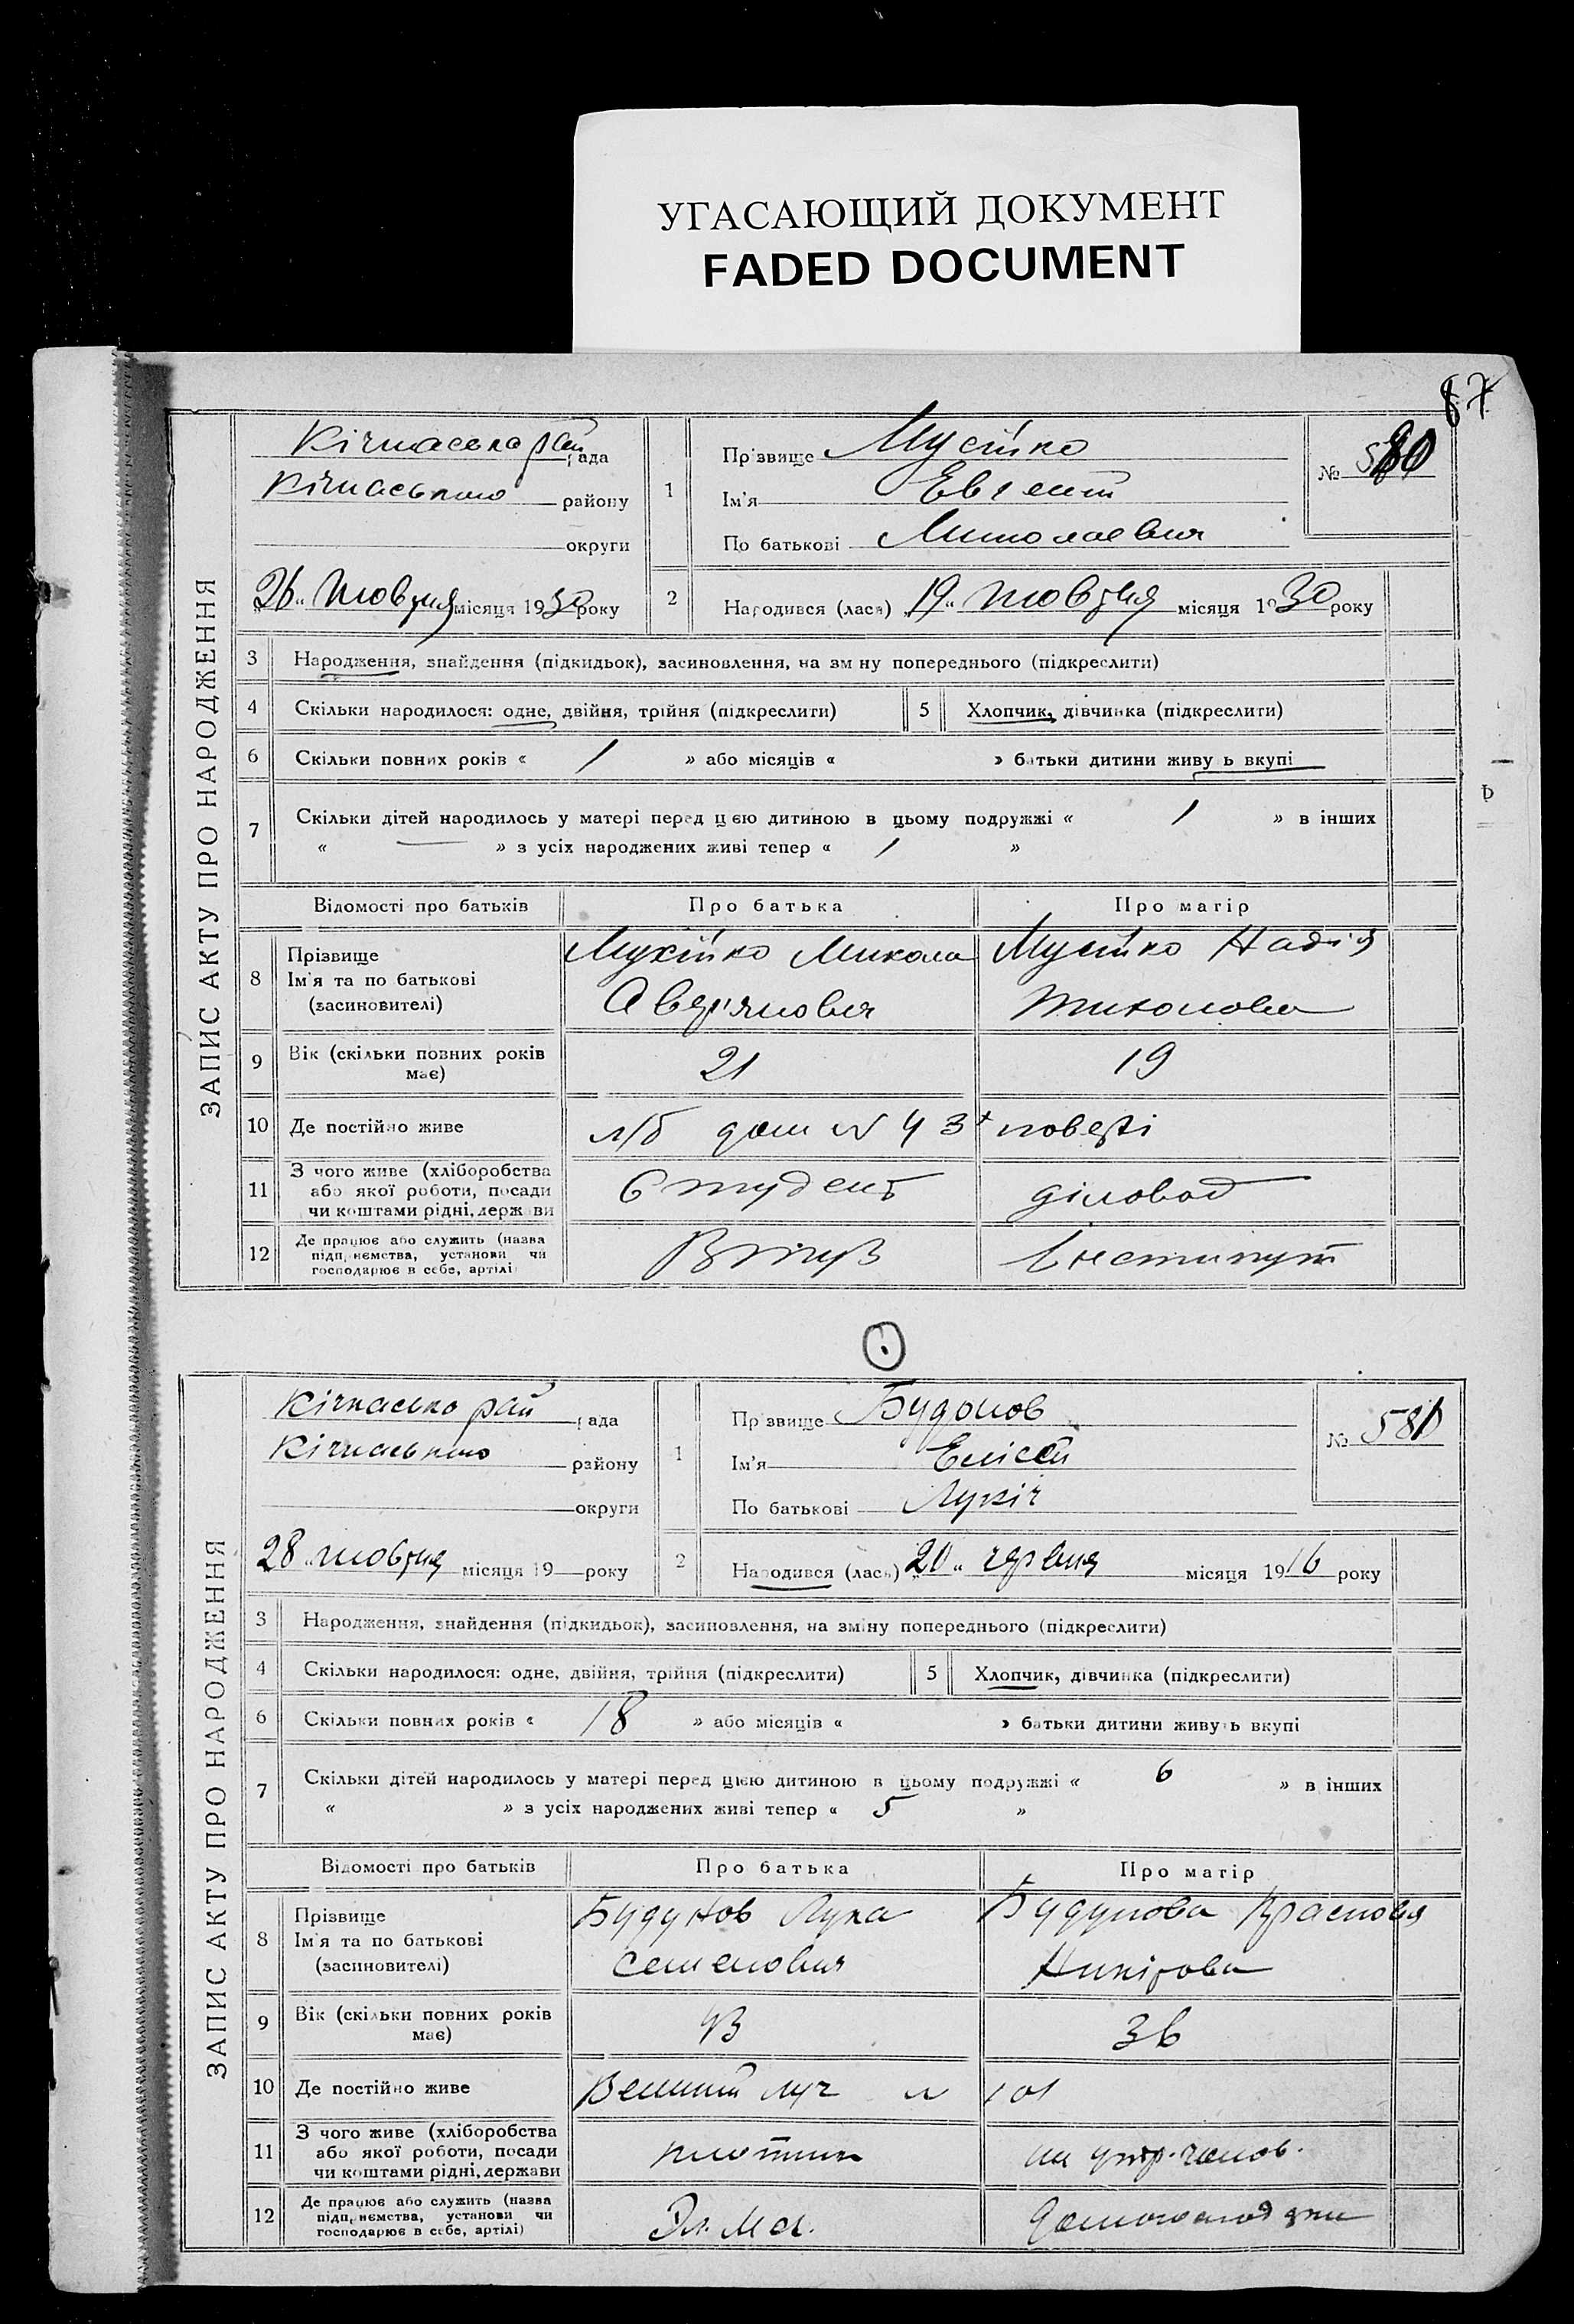 УГАСАЮЩИЙ ДОКУМЕНТ
FADED DOCUMENT
87
ЗАПИС АКТУ ПРО НАРОДЖЕННЯ
Кічкаська рай рада
Кічкаського району
округи
26 жовтня місяця 1930 року
1
Прізвище
Ім'я Евгений
По батькові Миколаевич
№ 580
2 Народився (лася) 19 жовтня місяця 1930 року
3 Народження, знайдення (підкидьок), засиновлення, на зміну попереднього (підкреслити)
4 Скільки народилося: одне, двійня, трійня (підкреслити) 5 Хлопчик, дівчинка (підкреслити)
6 Скільки повних років « 1 » або місяців « » батьки дитини живуть вкупі
7 Скільки дітей народилось у матері перед цією дитиною в цьому подружжі « 1 » в інших
« — » з усіх народжених живі тепер « 1 »
Відомості про батьків Про батька Про матір
8 Прізвище
Ім'я та по батькові
(засиновителі)
Микола
Авер'янович
Надія
Тихоновна
9 Вік (скільки повних років має) 21 19
10 Де постійно живе л/б дом № 4 3
11 З чого живе (хліборобства або якої роботи, посади чи коштами рідні, держави
Студент діловод
12 Де працює або служить (назва підприємства, установи чи господарює в себе, артілі)
Інститут
ЗАПИС АКТУ ПРО НАРОДЖЕННЯ
Кічкасько рай рада
Кічкаського району
округи
28 жовтня місяця 19 — року
1
Прізвище Будонов
Ім'я Елісей
По батькові Лукіч
№ 581
2 Народився (лася) 20 червня місяця 1916 року
3 Народження, знайдення (підкидьок), засиновлення, на зміну попереднього (підкреслити)
4 Скільки народилося: одне, двійня, трійня (підкреслити) 5 Хлопчик, дівчинка (підкреслити)
6 Скільки повних років « 18 » або місяців « » батьки дитини живуть вкупі
7 Скільки дітей народилось у матері перед цією дитиною в цьому подружжі « 6 » в інших
« » з усіх народжених живі тепер « 5 »
Відомості про батьків Про батька Про матір
8 Прізвище
Ім'я та по батькові
(засиновителі)
Будунов Лука
Семенович
Будунова
9 Вік (скільки повних років має) 43 36
10 Де постійно живе Великий луг № 101
11 З чого живе (хліборобства або якої роботи, посади чи коштами рідні, держави
плотник на утр. чолов.
12 Де працює або служить (назва підприємства, установи чи господарює в себе, артілі)